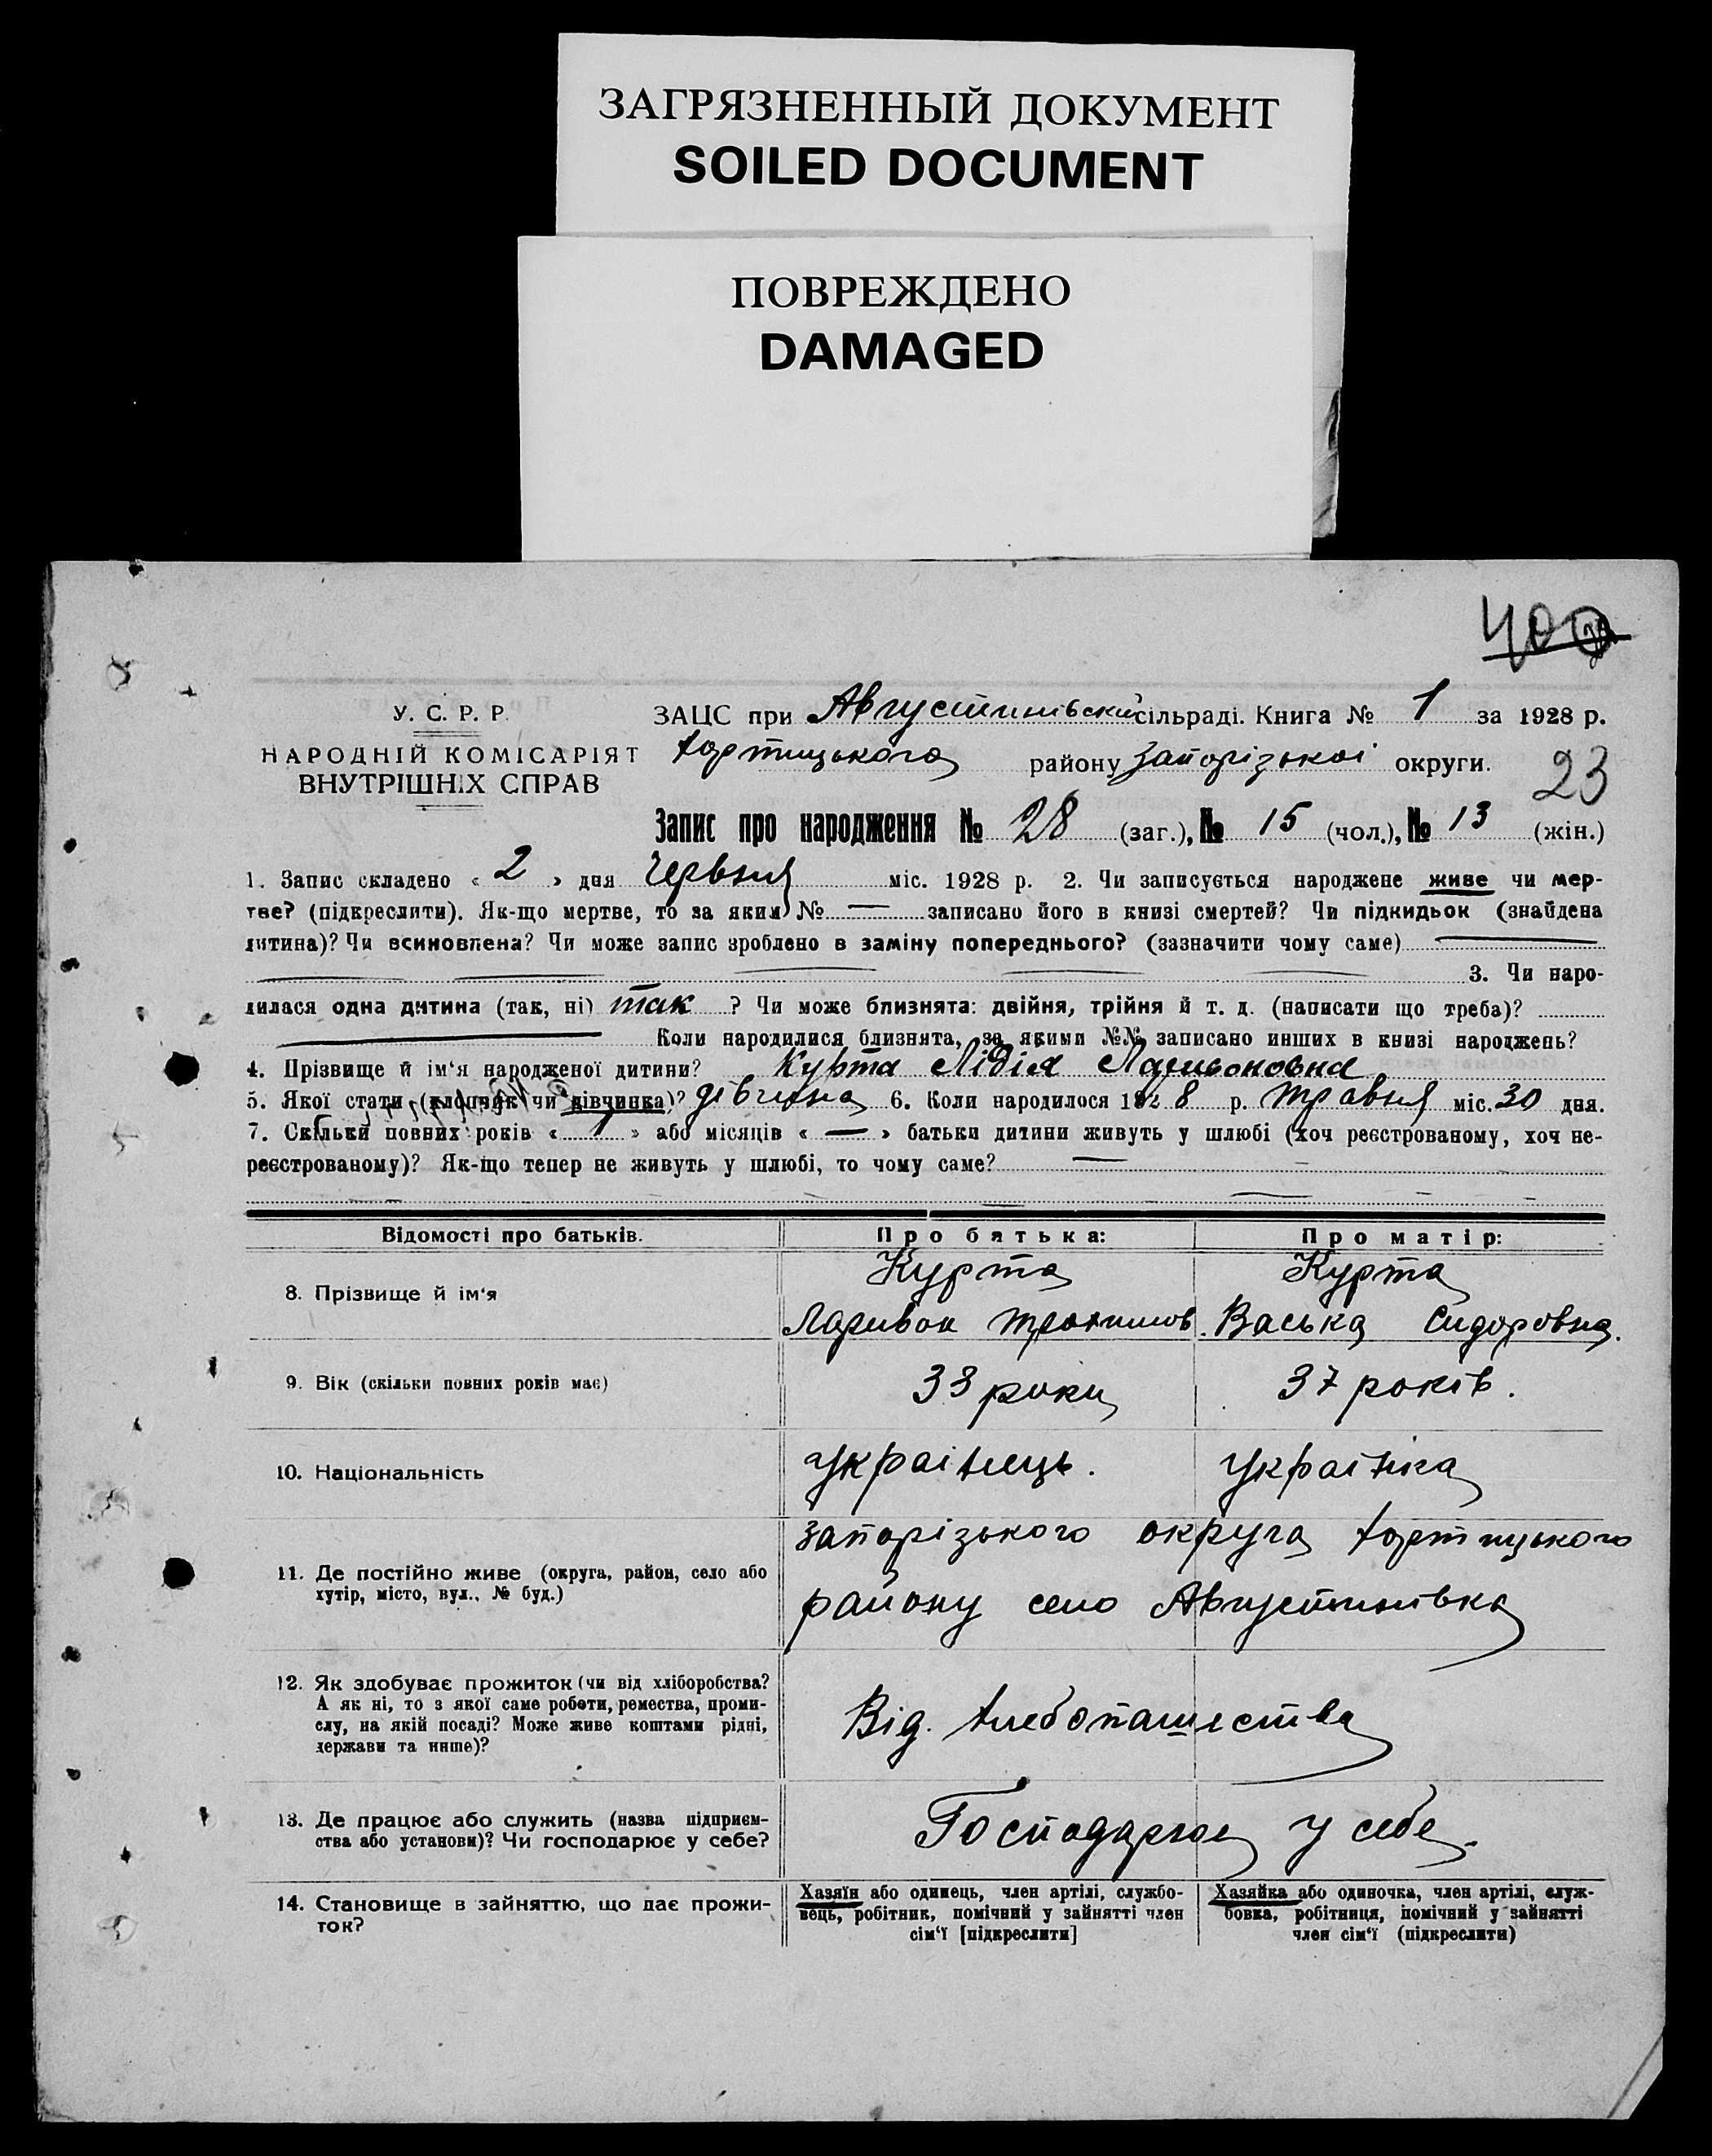 ЗАГРЯЗНЕННЫЙ ДОКУМЕНТ
SOILED DOCUMENT
ПОВРЕЖДЕНО
DAMAGED
400
У. С. Р. Р.
НАРОДНІЙ КОМІСАРІЯТ
ВНУТРІШНІХ СПРАВ
ЗАЦС при Августинівській сільраді. Книга № 1 за 1928 р.
Хортицького району Запорізької округи.
23
Запис про народження № 28 (заг.), № 15 (чол.), № 13 (жін.)
1. Запис складено « 2 » дня Червня міс. 1928 р. 2. Чи записується народжене живе чи мер-
тве? (підкреслити). Як-що мертве, то за яким № — записано його в книзі смертей? Чи підкидьок (знайдена
дитина)? Чи всиновлена? Чи може запис зроблено в заміну попереднього? (зазначити чому саме) —
3. Чи наро-
дилася одна дитина (так, ні) так ? Чи може близнята: двійня, трійня й т. д. (написати що треба)?
— Коли народилися близнята, за якими №№ записано инших в книзі народжень?
4. Прізвище й ім'я народженої дитини? Курта Лідія Ларивоновна
5. Якої стати (хлопчик чи дівчинка)? дівчина 6. Коли народилося 1928 р. травня міс. 30 дня.
7. Скільки повних років « 1 » або місяців « — » батьки дитини живуть у шлюбі (хоч реєстрованому, хоч не-
реєстрованому)? Як-що тепер не живуть у шлюбі, то чому саме? —
Відомості про батьків. Про батька: Про матір:
8. Прізвище й ім'я
Курта Курта
Ларивон Трохимов. Васька Сидоровна.
9. Вік (скільки повних років має) 33 роки 37 років.
10. Національність українець. Українка
11. Де постійно живе (округа, район, село або
хутір, місто, вул., № буд.)
Запорізького округа Хортицького
району село Августинівка
12. Як здобуває прожиток (чи від хліборобства?
А як ні, то з якої саме роботи, ремества, проми-
слу, на якій посаді? Може живе коштами рідні,
держави та инше)?
Від. Хлебопашества
13. Де працює або служить (назва підприєм-
ства або установи)? Чи господарює у себе?
Господарює у себе.
14. Становище в зайняттю, що дає прожи-
ток?
Хазяїн або одинець, член артілі, службо-
вець, робітник, помічний у зайнятті член
сім'ї [підкреслити]
Хазяйка або одиночка, член артілі, служ-
бовка, робітниця, помічний у зайнятті
член сім'ї (підкреслити)